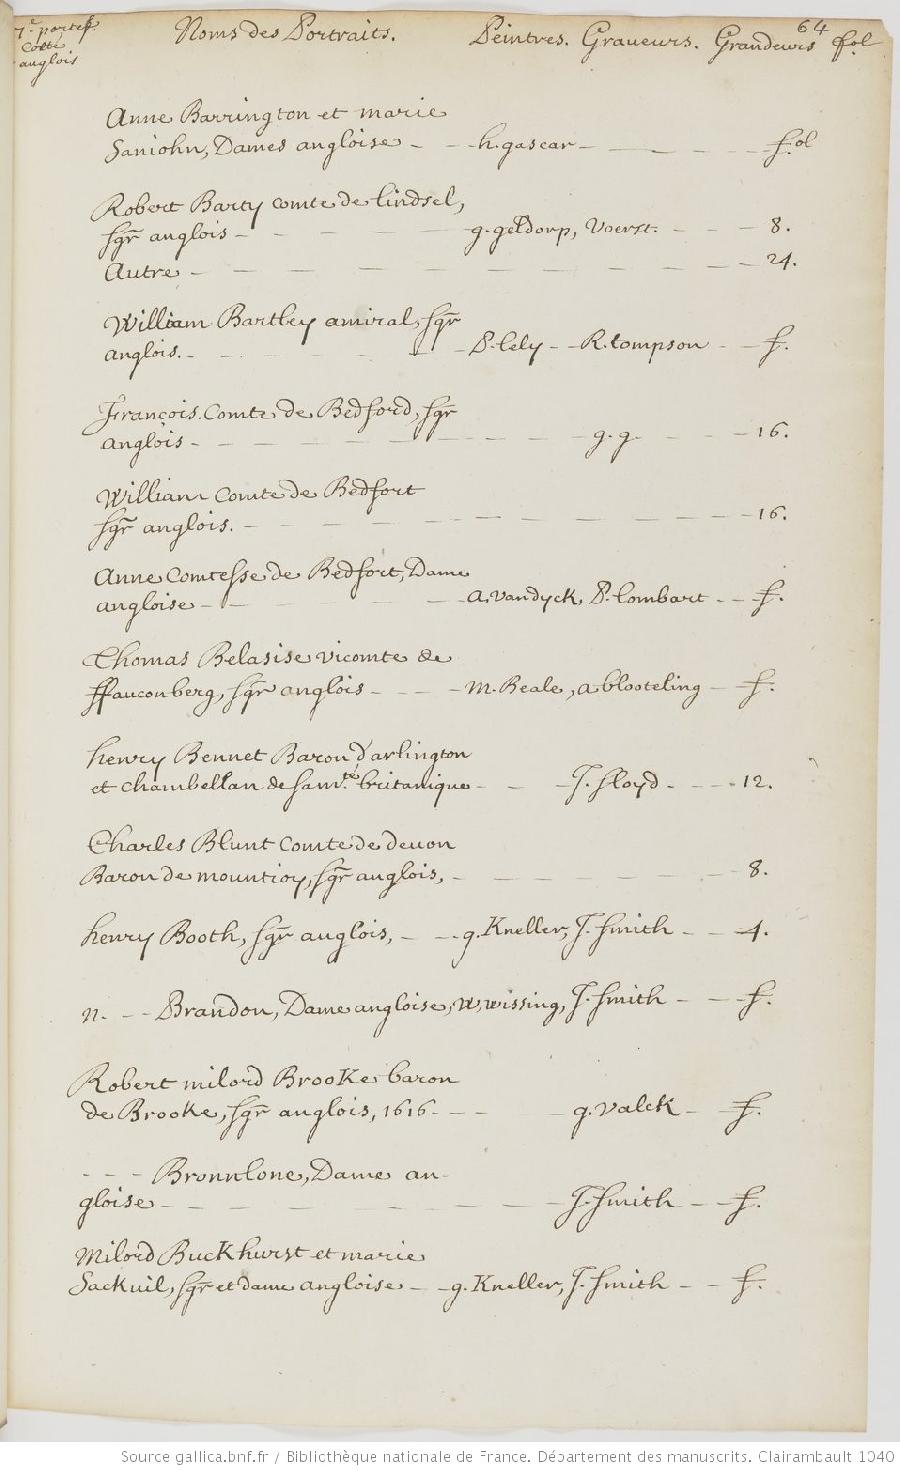 7.e portef. Noms des Portraits. Peintres. Graveurs. Grandeurs 64 fol
Cotté
anglois
Anne Barrington et marie
Saniohn, Dames angloise - - h. gascar - - - - - f.ol
Robert Barty comte de lindsel,
sgr anglois - - - - - g. geldorp, Voerst. - - - 8.
Autre - - - - - - - - - - 24.
William Bartley amiral, sgr
anglois. - - - - - P. lely - - R. tompson - - f.
François. Comte de Bedford, sgr
anglois - - - - - - - g. g. - - - 16.
William Comte de Bedfort
sgr anglois. - - - - - - - - - 16.
Anne Comtesse de Bedfort, Dame
angloise - - - - - A. vandyck, P. lombart - - f.
Thomas Belasise vicomte de
ffauconberg, sgr anglois - - - - m. Beale, a blooteling - f.
henry Bennet Baron d'arlington
et chambellan de sa m.té britanique - - - J. floyd - - - - 12.
Charles Blunt Comte de devon
Baron de mountioy, sgr anglois, - - - - - - - 8.
henry Booth, sgr anglois, - - g. Kneller, J. Smith - - 4.
n. - - Brandon, Dame angloise, W. wissing, J. Smith - - f.
Robert milord Brooke baron
de Brooke, sgr anglois, 1616. - - - g. valck - f.
- - - Brounlone, Dame an-
gloise - - - - - - - J. Smith - - f.
Milord Buckhurst et marie
Sackuil, sgr et dame angloise - - g. Kneller, J. Smith - - f.
Source gallica.bnf.fr / Bibliothèque nationale de France. Département des manuscrits. Clairambault 1040